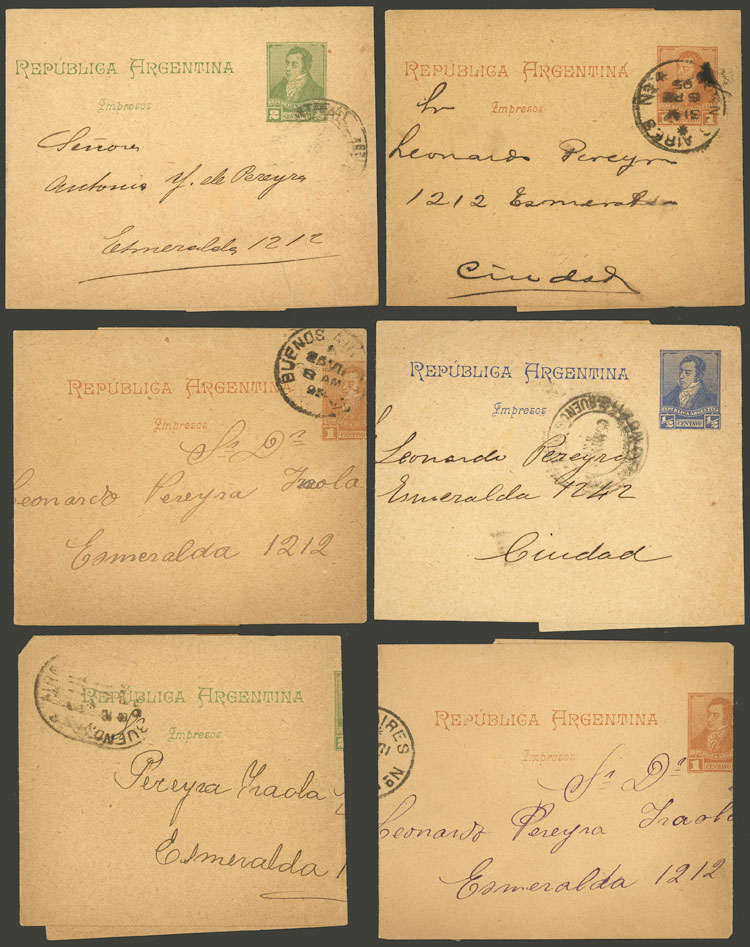 REPÚBLICA ARGENTINA
Impresos
2 CENTAVOS
Señora
Antonia Y. de Pereyra
Esmeralda 1212
REPÚBLICA ARGENTINA
Impresos
Sr
Leonardo Pereyra
1212 Esmeralda
Ciudad
AIRES
95
BUENOS AI
8 AM
REPÚBLICA ARGENTINA
Impresos
1 CENTAVO
Sr. Dn
Leonardo Pereyra Iraola
Esmeralda 1212
REPÚBLICA ARGENTINA
Impresos
REPUBLICA ARGENTINA
1/2 CENTAVO 1/2
Leonardo Pereyra
Esmeralda 1242
Ciudad
REPÚBLICA ARGENTINA
Impresos
BUENOS AIRES
Pereyra Iraola
Esmeralda 1
REPÚBLICA ARGENTINA
Impresos
1 CENTAVO
AIRES
Sr. Dn
Leonardo Pereyra Iraola
Esmeralda 1212